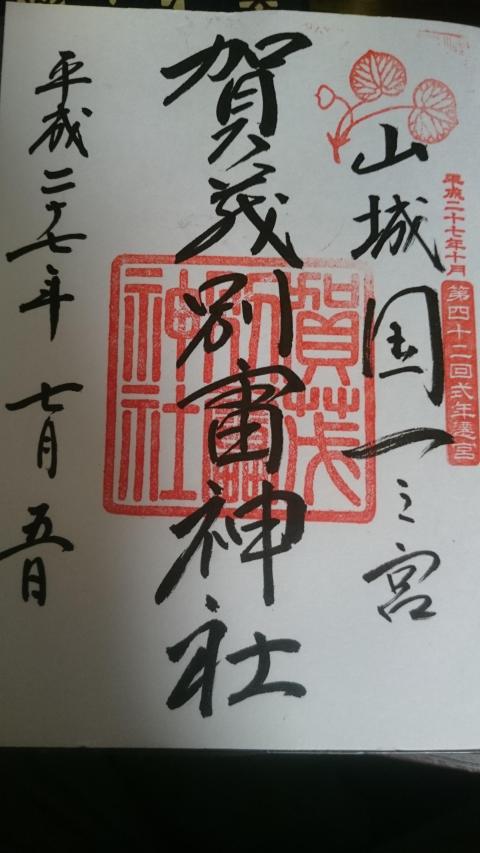 平成二十七年十月
第四十二回式年遷宮
山城国一之宮
賀茂別雷神社
賀茂別雷神社
平成二十七年 七月 五日